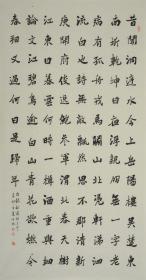 昔聞洞庭水今上岳陽樓吳楚東
南坼乾坤日夜浮親朋無一字老
病有孤舟戎馬關山北憑軒涕泗
流白也詩無敵飄然思不群清新
庾開府俊逸鮑參軍渭北春天樹
江東日暮雲何時一樽酒重與細
論文江碧鳥逾白山青花欲燃今
春看又過何日是歸年